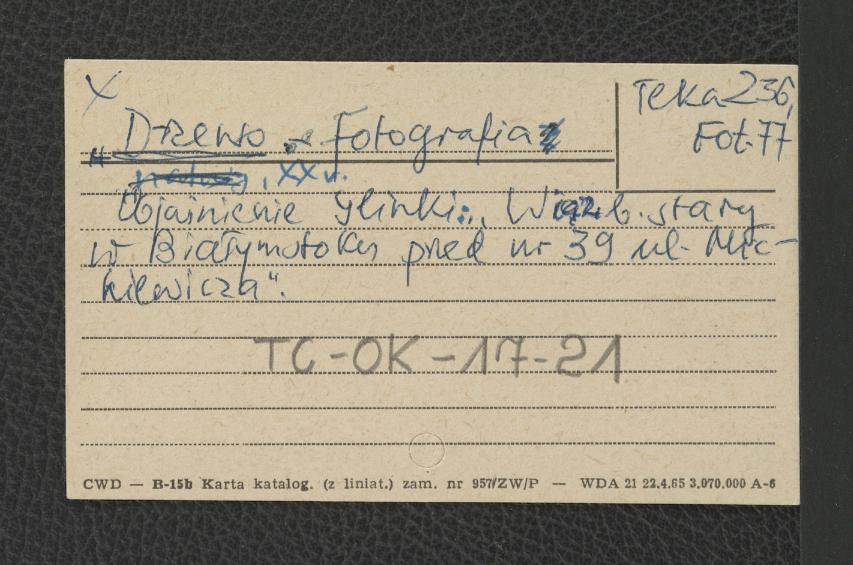 X
Teka 236,
Fot. 77
„Drzewo - Fotografia
, XX w.
Objaśnienie Glinki: „Wiąz b. stary
w Białymstoku przed nr 39 ul. Mic-
kiewicza".
TC-OK-17-21
CWD — B-15b Karta katalog. (z liniat.) zam. nr 957/ZW/P — WDA 21 22.4.65 3.070.000 A-6